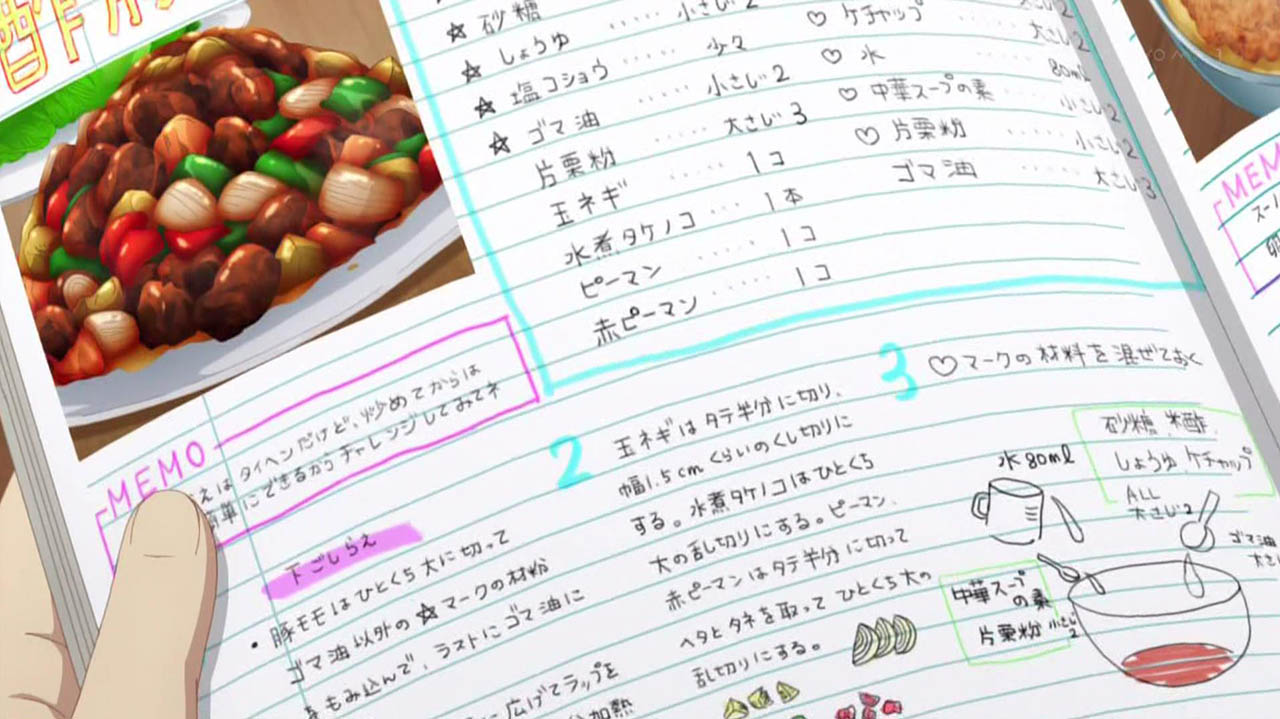 酢
☆ 砂糖 ····· 小さじ2
☆ しょうゆ
☆ 塩コショウ ····· 少々
☆ ゴマ油 ····· 小さじ2
片栗粉 ····· 大さじ3
玉ネギ ····· 1コ
水煮タケノコ ··· 1本
ピーマン ····· 1コ
赤ピーマン ····· 1コ
♡ ケチャップ 大さじ2
♡ 水 ····· 80ml
♡ 中華スープの素 小さじ2
♡ 片栗粉 ····· 小さじ2
ゴマ油 ····· 大さじ3
MEMO
はタイヘンだけど、炒めてからは
簡単にできるからチャレンジしてみてネ
下ごしらえ
・豚モモはひとくち大に切って
ゴマ油以外の☆マークの材料
をもみ込んで、ラストにゴマ油に
に広げてラップを
加熱
2
玉ネギはタテ半分に切り、
幅1.5cmくらいのくし切りに
する。水煮タケノコはひとくち
大の乱切りにする。ピーマン、
赤ピーマンはタテ半分に切って
ヘタとタネを取ってひとくち大の
乱切りにする。
3
♡マークの材料を混ぜておく
水80ml
砂糖 米酢
しょうゆ ケチャップ
ALL
大さじ2
ゴマ油
大さじ
中華スープ
の素
片栗粉 小さじ2
MEMO
スー
卵